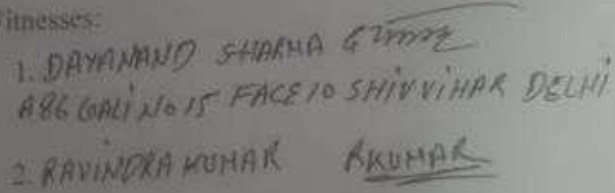 Witnesses:
1. DAYANAND SHARMA
A86 GALI No 15 FACE 10 SHIV VIHAR DELHI
2. RAVINDRA KUMAR RKUMAR